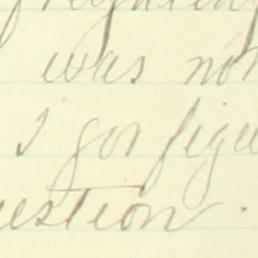 was not
I got figu
uestion.